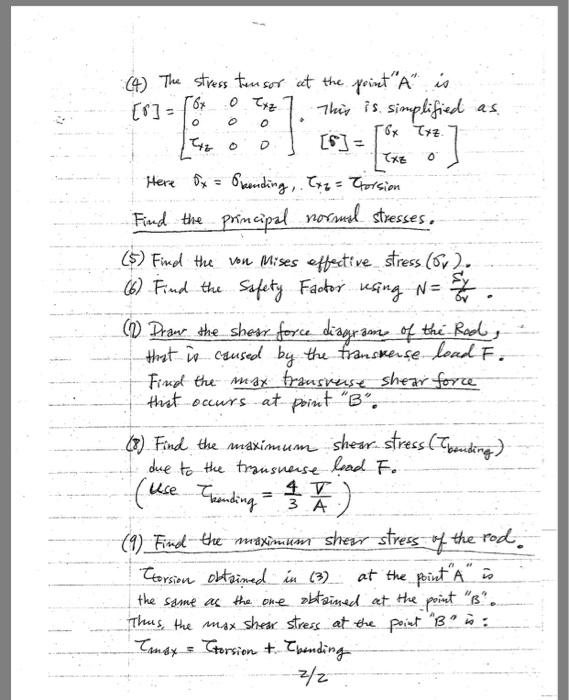 (4) The stress tensor at the point "A" is
[σ] = [σx 0 τxz
0 0 0
τxz 0 0]. This is simplified as
[σ] = [σx τxz
τxz 0]
Here σx = σbending, τxz = τtorsion
Find the principal normal stresses.
(5) Find the von Mises effective stress (σv).
(6) Find the Safety Factor using N = Sy/σv.
(7) Draw the shear force diagram of the Rod,
that is caused by the transverse load F.
Find the max transverse shear force
that occurs at point "B".
(8) Find the maximum shear stress (τbending)
due to the transverse load F.
(Use τbending = 4/3 V/A)
(9) Find the maximum shear stress of the rod.
τtorsion obtained in (3) at the point "A" is
the same as the one obtained at the point "B".
Thus, the max shear stress at the point "B" is:
τmax = τtorsion + τbending
2/2